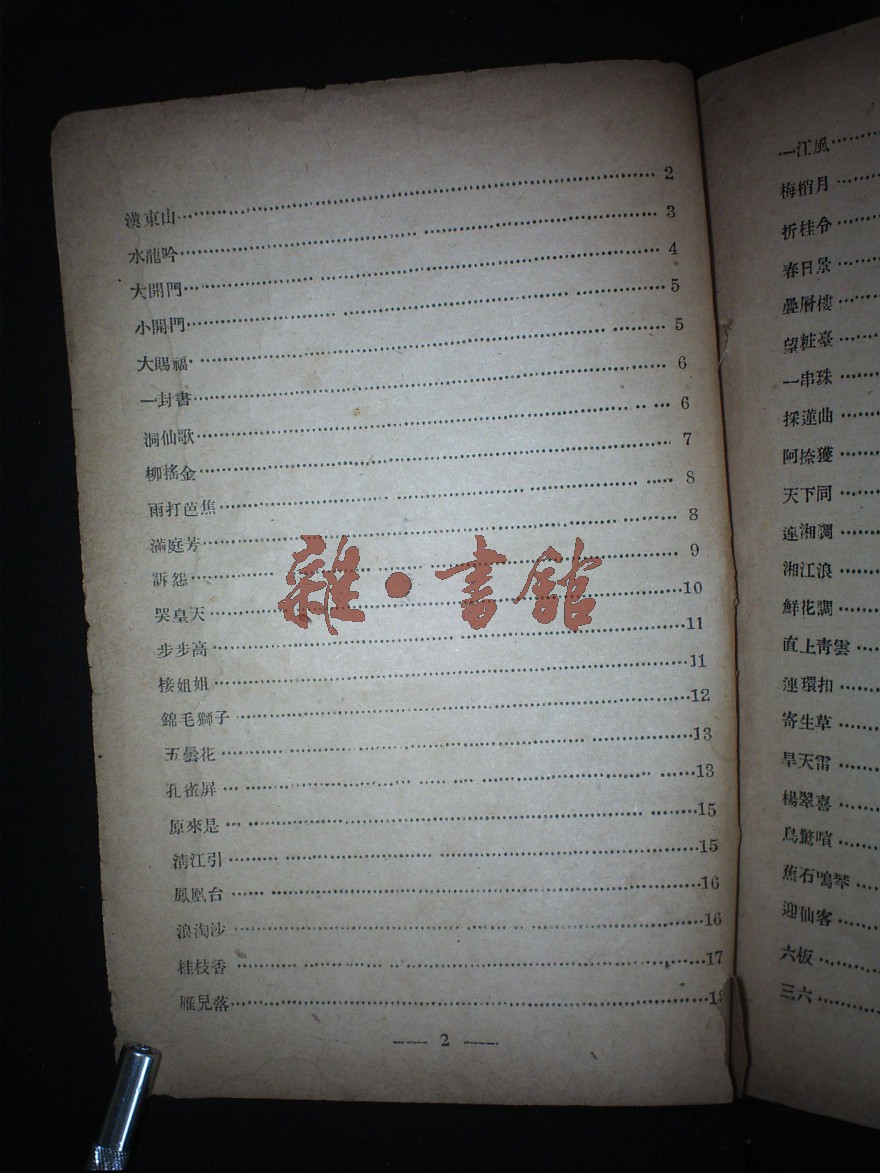 漢東山 2
水龍吟 3
大開門 4
小開門 5
大賜福 5
一封書 6
洞仙歌 6
柳搖金 7
雨打芭焦 8
滿庭芳 8
訴怨 9
哭皇天 10
步步高 11
接姐姐 11
錦毛獅子 12
五曇花 13
孔雀屏 13
原來是 15
清江引 15
鳳凰台 16
浪淘沙 16
桂枝香 17
雁兒落
2
一江風
梅梢月
折桂令
春日景
疊層樓
望粧臺
一串珠
採蓮曲
阿捺獲
天下同
連湘調
湘江浪
鮮花調
直上靑雲
連環扣
寄生草
旱天雷
楊翠喜
鳥驚喧
蕉石鳴琴
迎仙客
六板
三六
雜·書館